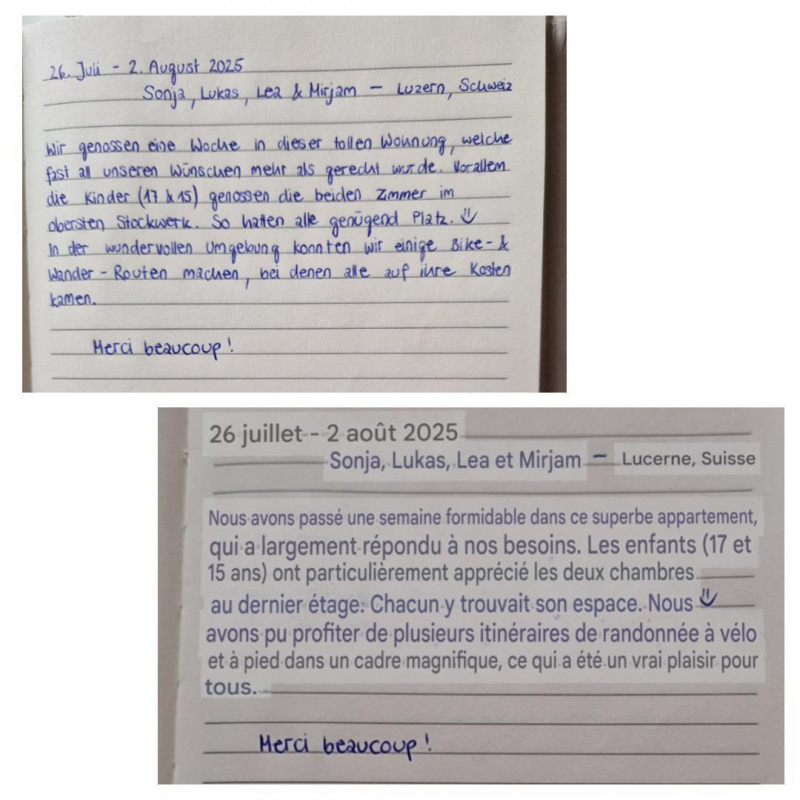 26. Juli - 2. August 2025
Sonja, Lukas, Lea & Mirjam - Luzern, Schweiz
Wir genossen eine Woche in dieser tollen Wohnung, welche
fast all unseren Wünschen mehr als gerecht wurde. Vorallem
die Kinder (17 & 15) genossen die beiden Zimmer im
obersten Stockwerk. So hatten alle genügend Platz.
In der wundervollen Umgebung konnten wir einige Bike- &
Wander-Routen machen, bei denen alle auf ihre Kosten
kamen.
Merci beaucoup!
26 juillet - 2 août 2025
Sonja, Lukas, Lea et Mirjam - Lucerne, Suisse
Nous avons passé une semaine formidable dans ce superbe appartement,
qui a largement répondu à nos besoins. Les enfants (17 et
15 ans) ont particulièrement apprécié les deux chambres
au dernier étage. Chacun y trouvait son espace. Nous
avons pu profiter de plusieurs itinéraires de randonnée à vélo
et à pied dans un cadre magnifique, ce qui a été un vrai plaisir pour
tous.
Merci beaucoup!